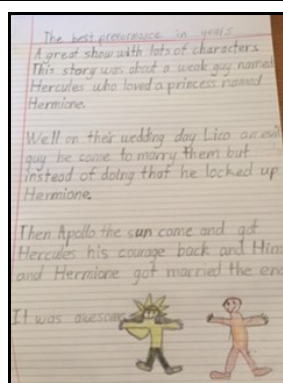 The best preformance in years
A great show with lots of characters
This story was about a weak guy named
Hercules who loved a princess named
Hermione.
Well on their wedding day Lico an evil
guy he come to marry them but
instead of doing that he locked up
Hermione.
Then Apollo the sun came and got
Hercules his courage back and Him
and Hermione got married the end
It was awesome